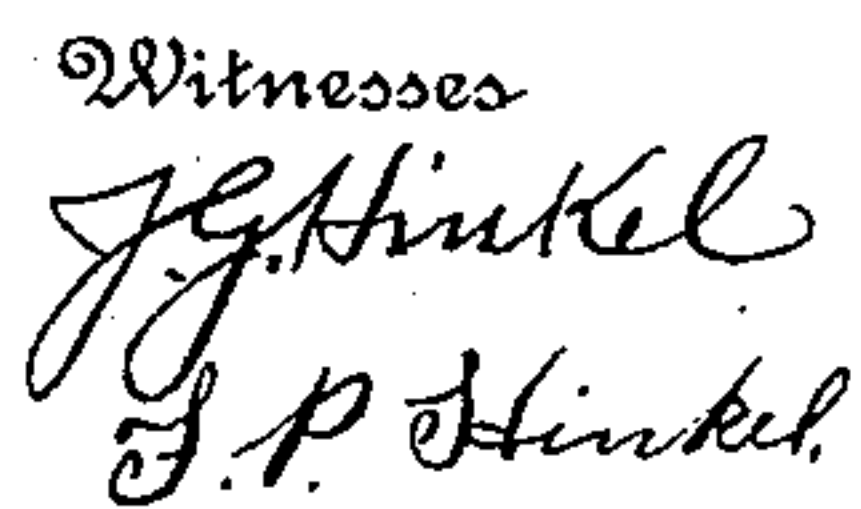 Witnesses
J. G. Hinkel
F. P. Hinkel.